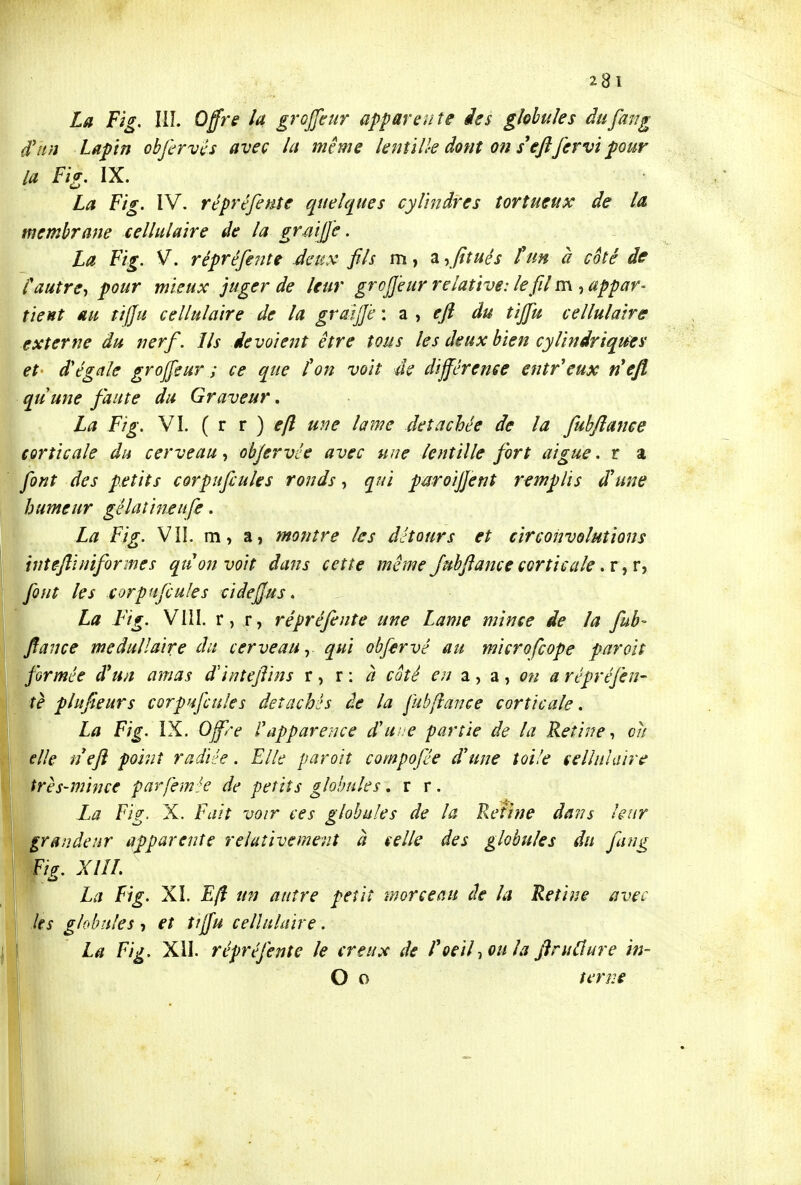 281
La Fig. III. Offre la grosseur apparente des globules du sang
d'un Lapin observés avec la même lentille dont on s'est servi pour
la Fig. IX.
La Fig. IV. réprésente quelques cylindres tortueux de la
membrane cellulaire de la graisse.
La Fig. V. réprésente deux fils m, a, situés l'un à côté de
l'autre, pour mieux juger de leur grosseur relative: le fil m, appar-
tient au tissu cellulaire de la graisse: a, est du tissu cellulaire
externe du nerf. Ils devoient être tous les deux bien cylindriques
et d'égale grosseur; ce que l'on voit de différence entr'eux n'est
qu'une faute du Graveur.
La Fig. VI. ( r r ) est une lame detachée de la substance
corticale du cerveau, observée avec une lentille fort aigue. r a
sont des petits corpuscules ronds, qui paroissent remplis d'une
humeur gélatineuse.
La Fig. VII. m, a, montre les détours et circonvolutions
intestiniformes qu'on voit dans cette même substance corticale. r, r,
sont les corpuscules cidessus.
La Fig. VIII. r, r, réprésente une Lame mince de la sub-
stance medullaire du cerveau, qui observé au microscope paroit
formée d'un amas d'intestins r, r: à côté en a, a, on a réprésen-
tè plusieurs corpuscules detachés de la substance corticale.
La Fig. IX. Offre l'apparence d'une partie de la Retine, où
elle n'est point radiée. Elle paroit composée d'une toile cellulaire
très-mince parsemée de petits globules. r r.
La Fig. X. Fait voir ces globules de la Retine dans leur
grandeur apparente relativement à celle des globules du sang
Fig. XIII.
La Fig. XI. Est un autre petit morceau de la Retine avec
les globules, et tissu cellulaire.
La Fig. XII. réprésente le creux de l'oeil, ou la structure in-
O o terne